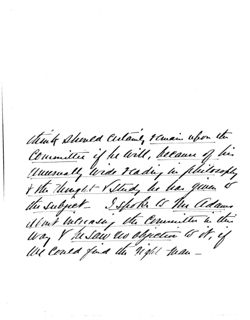 think should certainly remain upon the
Committee if he will, because of his
unusually wide reading in philosophy
& the thought & study he has given to
the subject_ I spoke to Mr Adams
about increasing the Committee in this
way & he saw no objection to it, if
we could find the right man_